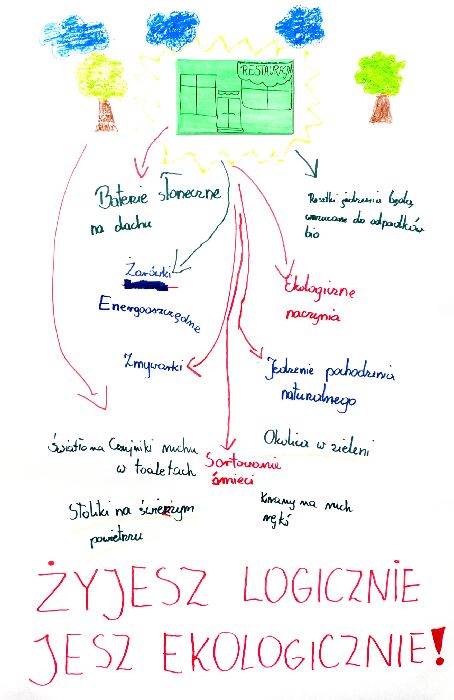 RESTAURACJA
Baterie słoneczne
na dachu
Resztki jedzenia będą
wrzucane do odpadków
bio
Żarówki
Energooszczędne
Ekologiczne
naczynia
Zmywarki
Jedzenie pochodzenia
naturalnego
Światło na Czujniki ruchu
w toaletach
Okolica w zieleni
Sortowanie
śmieci
Stoliki na świeżym
powietrzu
Krany na ruch
ręki
ŻYJESZ LOGICZNIE
JESZ EKOLOGICZNIE!